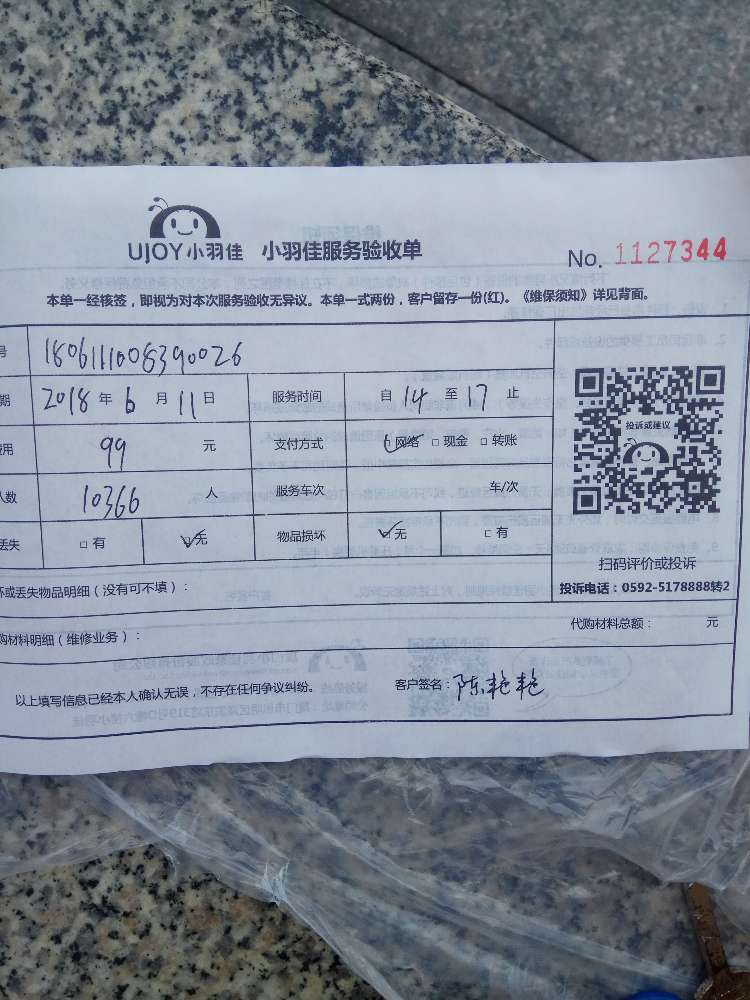 UJOY小羽佳 小羽佳服务验收单 No. 1127344
本单一经核签，即视为对本次服务验收无异议。本单一式两份，客户留存一份(红)。《维保须知》详见背面。
号 1806111008390026
期 2018 年 6 月 11 日 服务时间 自 14 至 17 止
费用 99 元 支付方式 ☑网络 □现金 □转账
人数 10366 人 服务车次 车/次
丢失 □有 ☑无 物品损坏 ☑无 □有
投诉或建议
扫码评价或投诉
投诉电话：0592-5178888转2
坏或丢失物品明细（没有可不填）：
购材料明细（维修业务）： 代购材料总额： 元
以上填写信息已经本人确认无误，不存在任何争议纠纷。 客户签名：陈艳艳